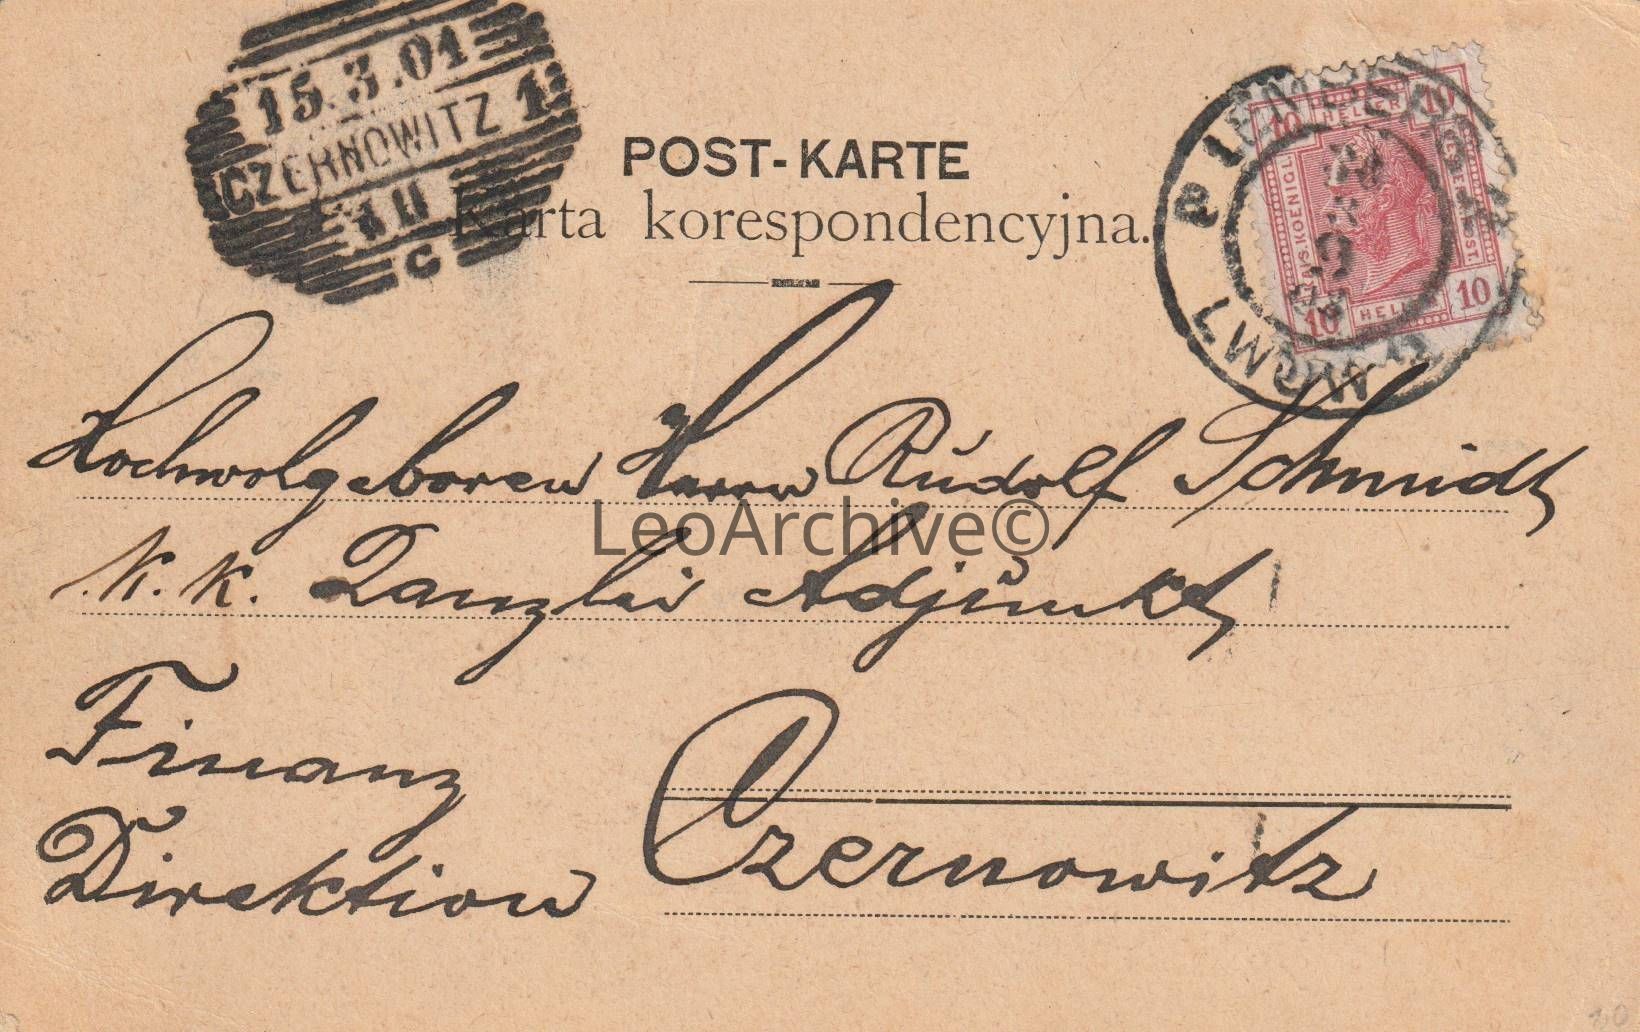 15.3.01
CZERNOWITZ 1
11
C
POST-KARTE
Karta korespondencyjna.
10 HELLER 10
KAIS. KOENIGL.
10 HELLER 10
Hochwolgeboren Herrn Rudolf Schmidt
k. k. Kanzlei Adjunkt
LeoArchive©
Finanz
Direktion
Czernowitz